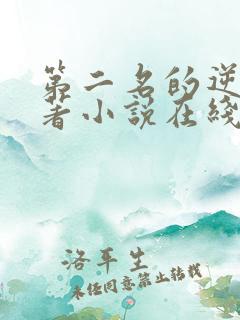 第二名的逆
着小说在线
洛平生
未经同意禁止转载